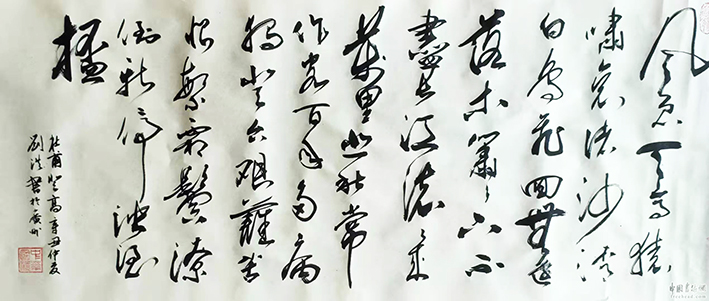 風急天高猿
嘯哀渚沙清
白鳥飛回無邊
落木蕭〻下不
盡長江滚〻來
萬里悲秋常
作客百年多病
獨登台艱難苦
恨繁霜鬢潦
倒新停濁酒
桮
杜甫登高辛丑仲夏
劉洪書於廣州